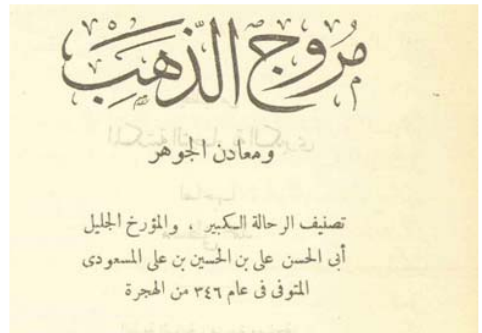 مُرُوجُ الذَّهَبِ
ومعادن الجوهر
تصنيف الرحالة الكبير ، والمؤرخ الجليل
أبى الحسن على بن الحسين بن على المسعودى
المتوفى فى عام ٣٤٦ من الهجرة